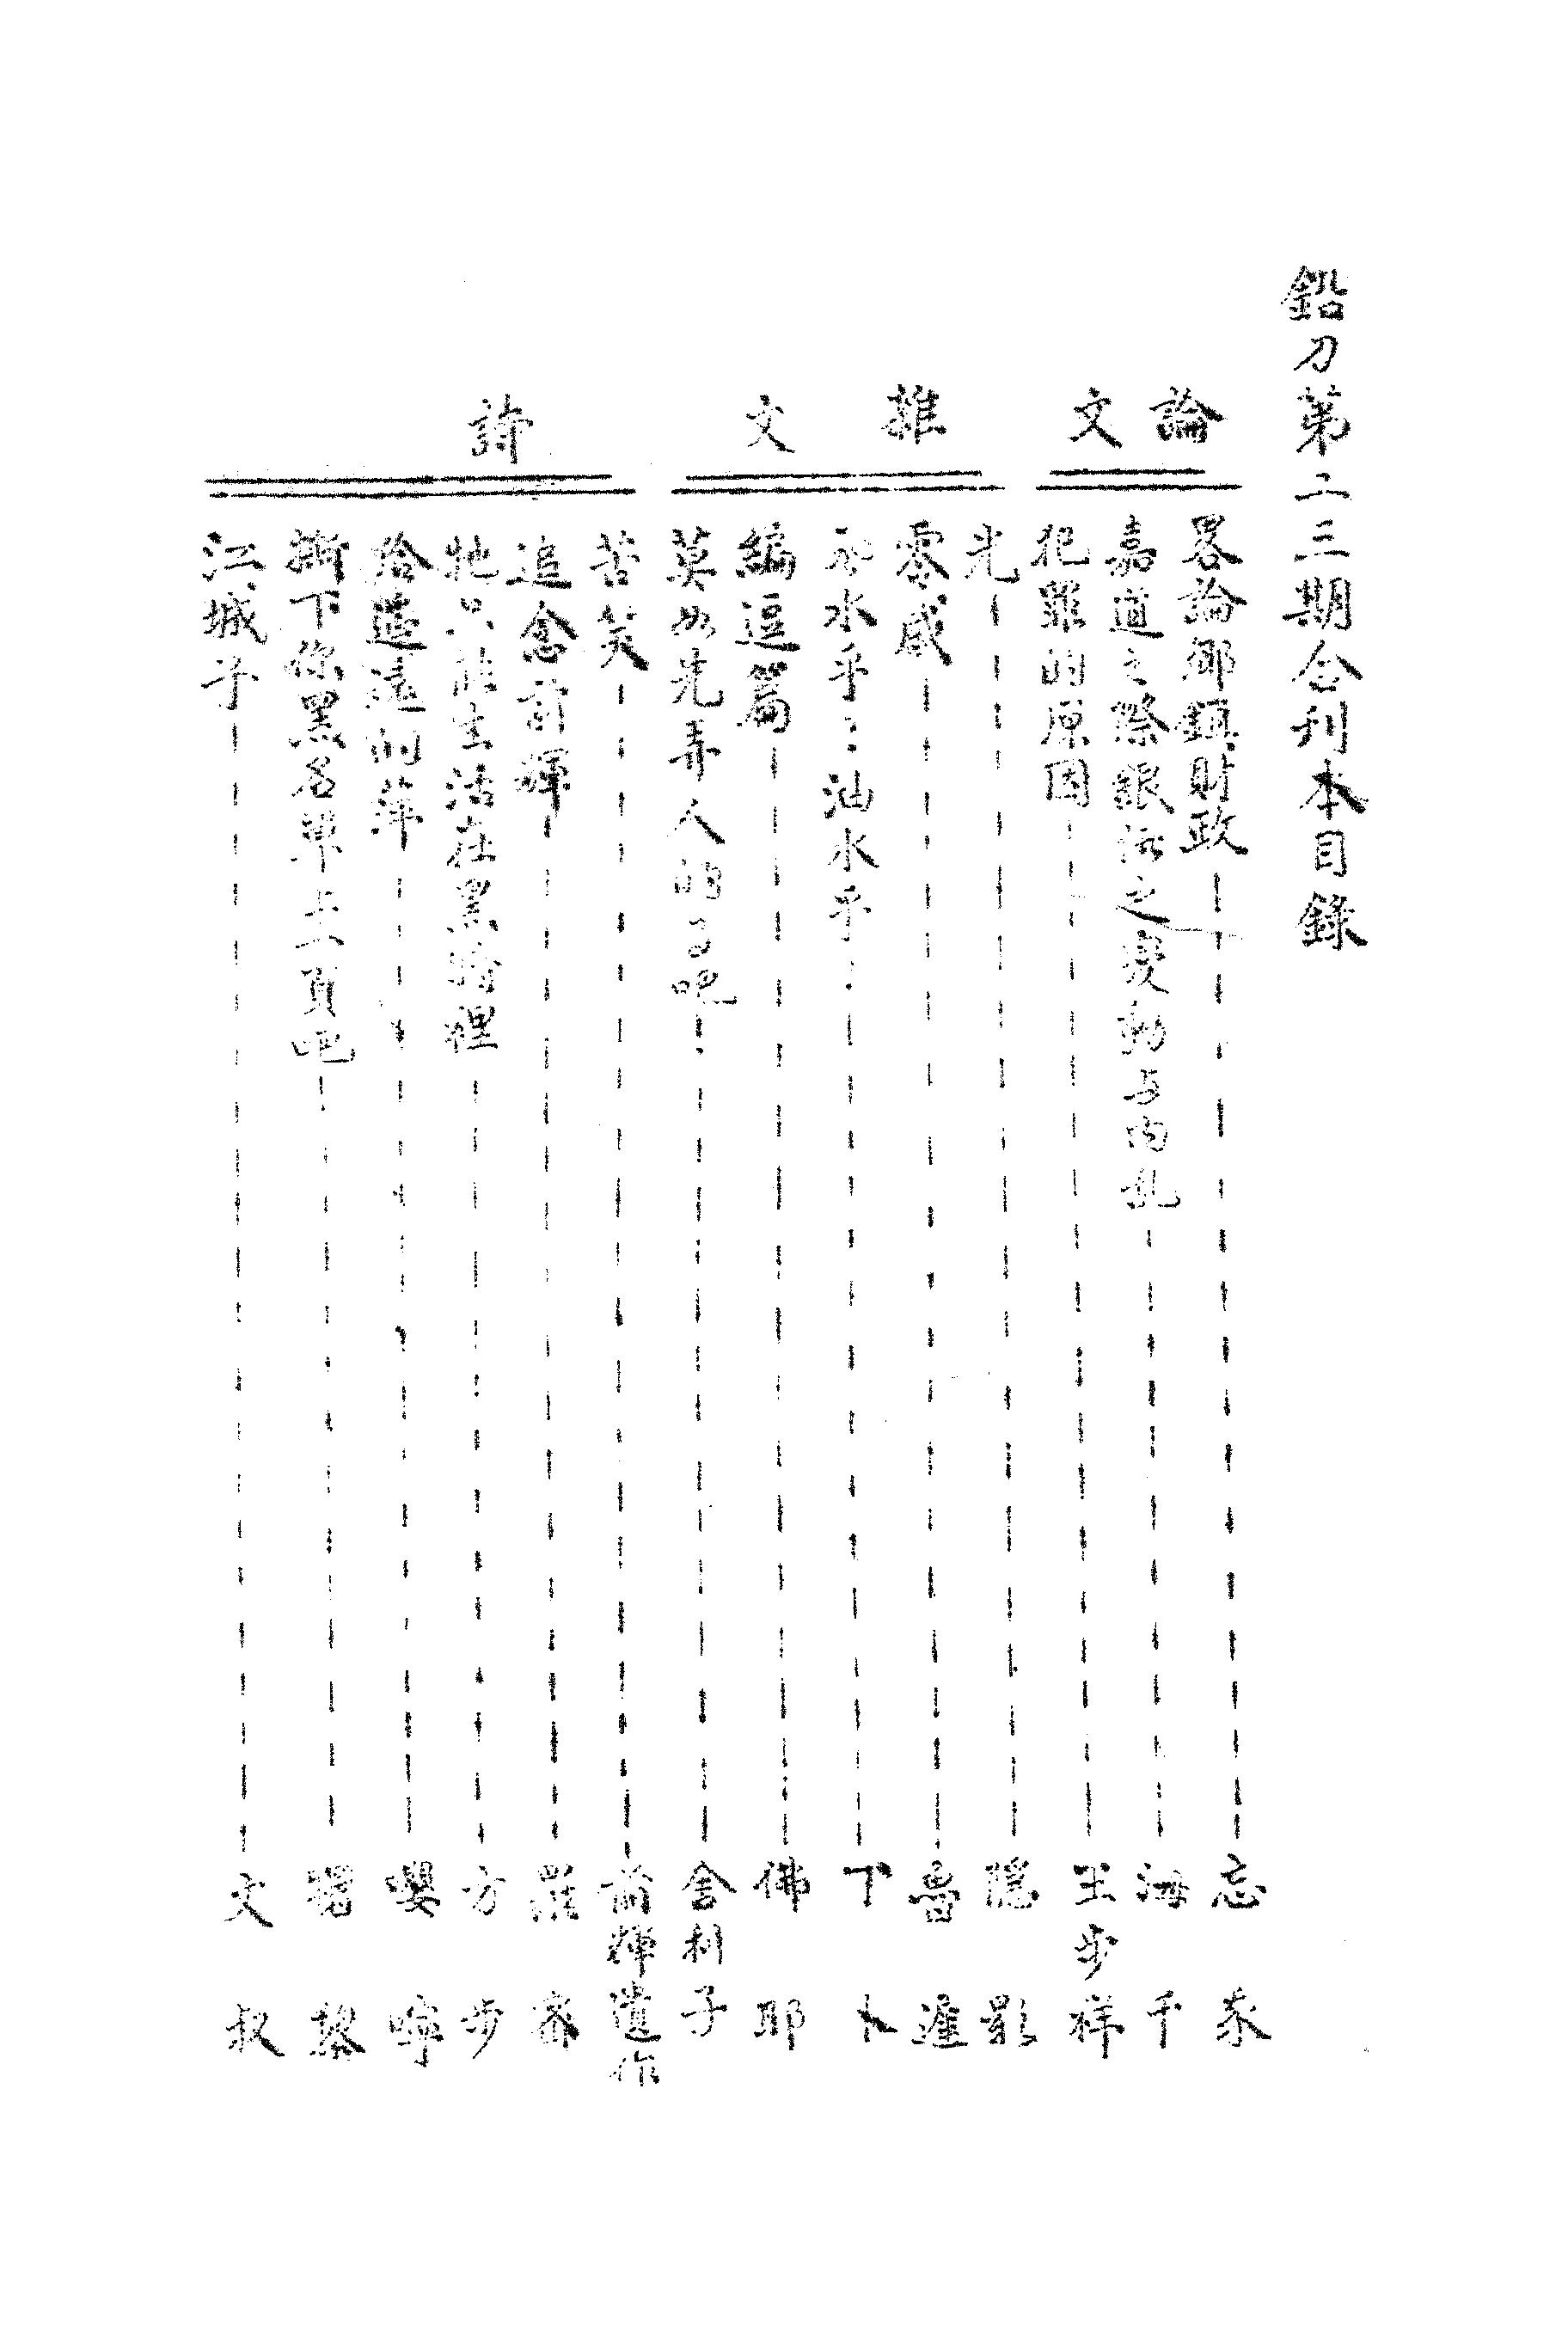 鉛刀第二三期合刊本目錄
論文
畧論鄉鎮財政 忘 我
嘉道之際銀價之變動与內乱 海 千
犯罪的原因 王步祥
雜文
光 隱 影
零感 魯 進
水乎：油水乎： 下 卜
編逗篇 佛 耶
莫如先弄人的了吧 舍利子
詩
苦笑 前輝遺作
追念前輝 羅 密
牠只能生活在黑暗裡 方 步
給遙遠的萍 嚶 嚀
撕下你黑名單上一頁吧 黎
江城子 文 叔